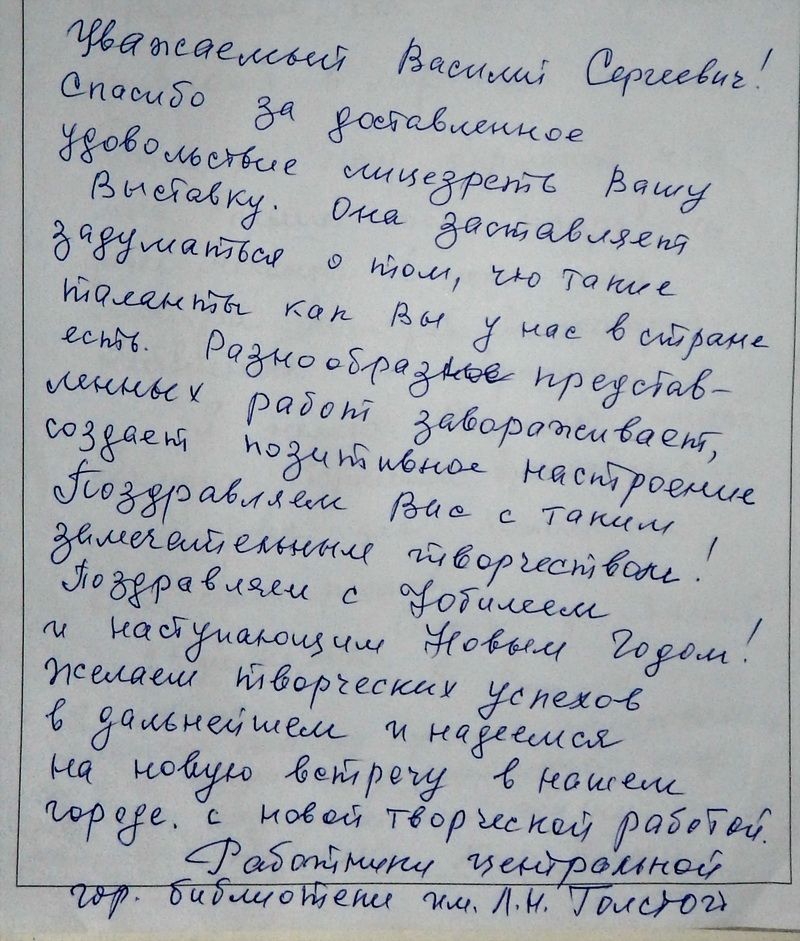 Уважаемый Василий Сергеевич!
Спасибо за доставленное
удовольствие лицезреть Вашу
Выставку. Она заставляет
задуматься о том, что такие
таланты как Вы у нас в стране
есть. Разнообразное представ-
ленных работ завораживает,
создает позитивное настроение
Поздравляем Вас с таким
замечательным творчеством!
Поздравляем с Юбилеем
и наступающим Новым Годом!
Желаем творческих успехов
в дальнейшем и надеемся
на новую встречу в нашем
городе. с новой творческой работой.
Работники центральной
гор. библиотеки им. Л.Н. Толстого